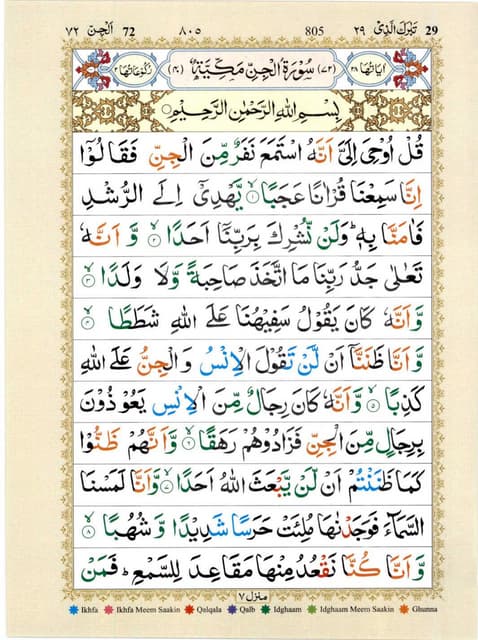 29 تَبٰرَكَ الَّذِيْ ٢٩ 805 ٨٠٥ 72 اَلْجِنّ ٧٢
اٰيَاتُهَا ٢٨ (٧٢) سُوْرَةُ الْجِنِّ مَكِّيَّةٌ (٤٠) رُكُوْعَاتُهَا ٢
بِسْمِ اللّٰهِ الرَّحْمٰنِ الرَّحِيْمِ
قُلْ اُوْحِيَ اِلَيَّ اَنَّهُ اسْتَمَعَ نَفَرٌ مِّنَ الْجِنِّ فَقَالُوْٓا
اِنَّا سَمِعْنَا قُرْاٰنًا عَجَبًا ۙ‏١ يَّهْدِيْٓ اِلَى الرُّشْدِ
فَاٰمَنَّا بِهٖ ؕ وَلَنْ نُّشْرِكَ بِرَبِّنَآ اَحَدًا ۙ‏٢ وَّ اَنَّهٗ
تَعٰلٰى جَدُّ رَبِّنَا مَا اتَّخَذَ صَاحِبَةً وَّلَا وَلَدًا ۙ‏٣
وَّاَنَّهٗ كَانَ يَقُوْلُ سَفِيْهُنَا عَلَى اللّٰهِ شَطَطًا ۙ‏٤
وَّاَنَّا ظَنَنَّآ اَنْ لَّنْ تَقُوْلَ الْاِنْسُ وَالْجِنُّ عَلَى اللّٰهِ
كَذِبًا ۙ‏٥ وَّاَنَّهٗ كَانَ رِجَالٌ مِّنَ الْاِنْسِ يَعُوْذُوْنَ
بِرِجَالٍ مِّنَ الْجِنِّ فَزَادُوْهُمْ رَهَقًا ۙ‏٦ وَّاَنَّهُمْ ظَنُّوْا
كَمَا ظَنَنْتُمْ اَنْ لَّنْ يَّبْعَثَ اللّٰهُ اَحَدًا ۙ‏٧ وَّاَنَّا لَمَسْنَا
السَّمَآءَ فَوَجَدْنٰهَا مُلِئَتْ حَرَسًا شَدِيْدًا وَّشُهُبًا ۙ‏٨
وَّاَنَّا كُنَّا نَقْعُدُ مِنْهَا مَقَاعِدَ لِلسَّمْعِ ؕ فَمَنْ
منزل ٧
Ikhfa Ikhfa Meem Saakin Qalqala Qalb Idghaam Idghaam Meem Saakin Ghunna